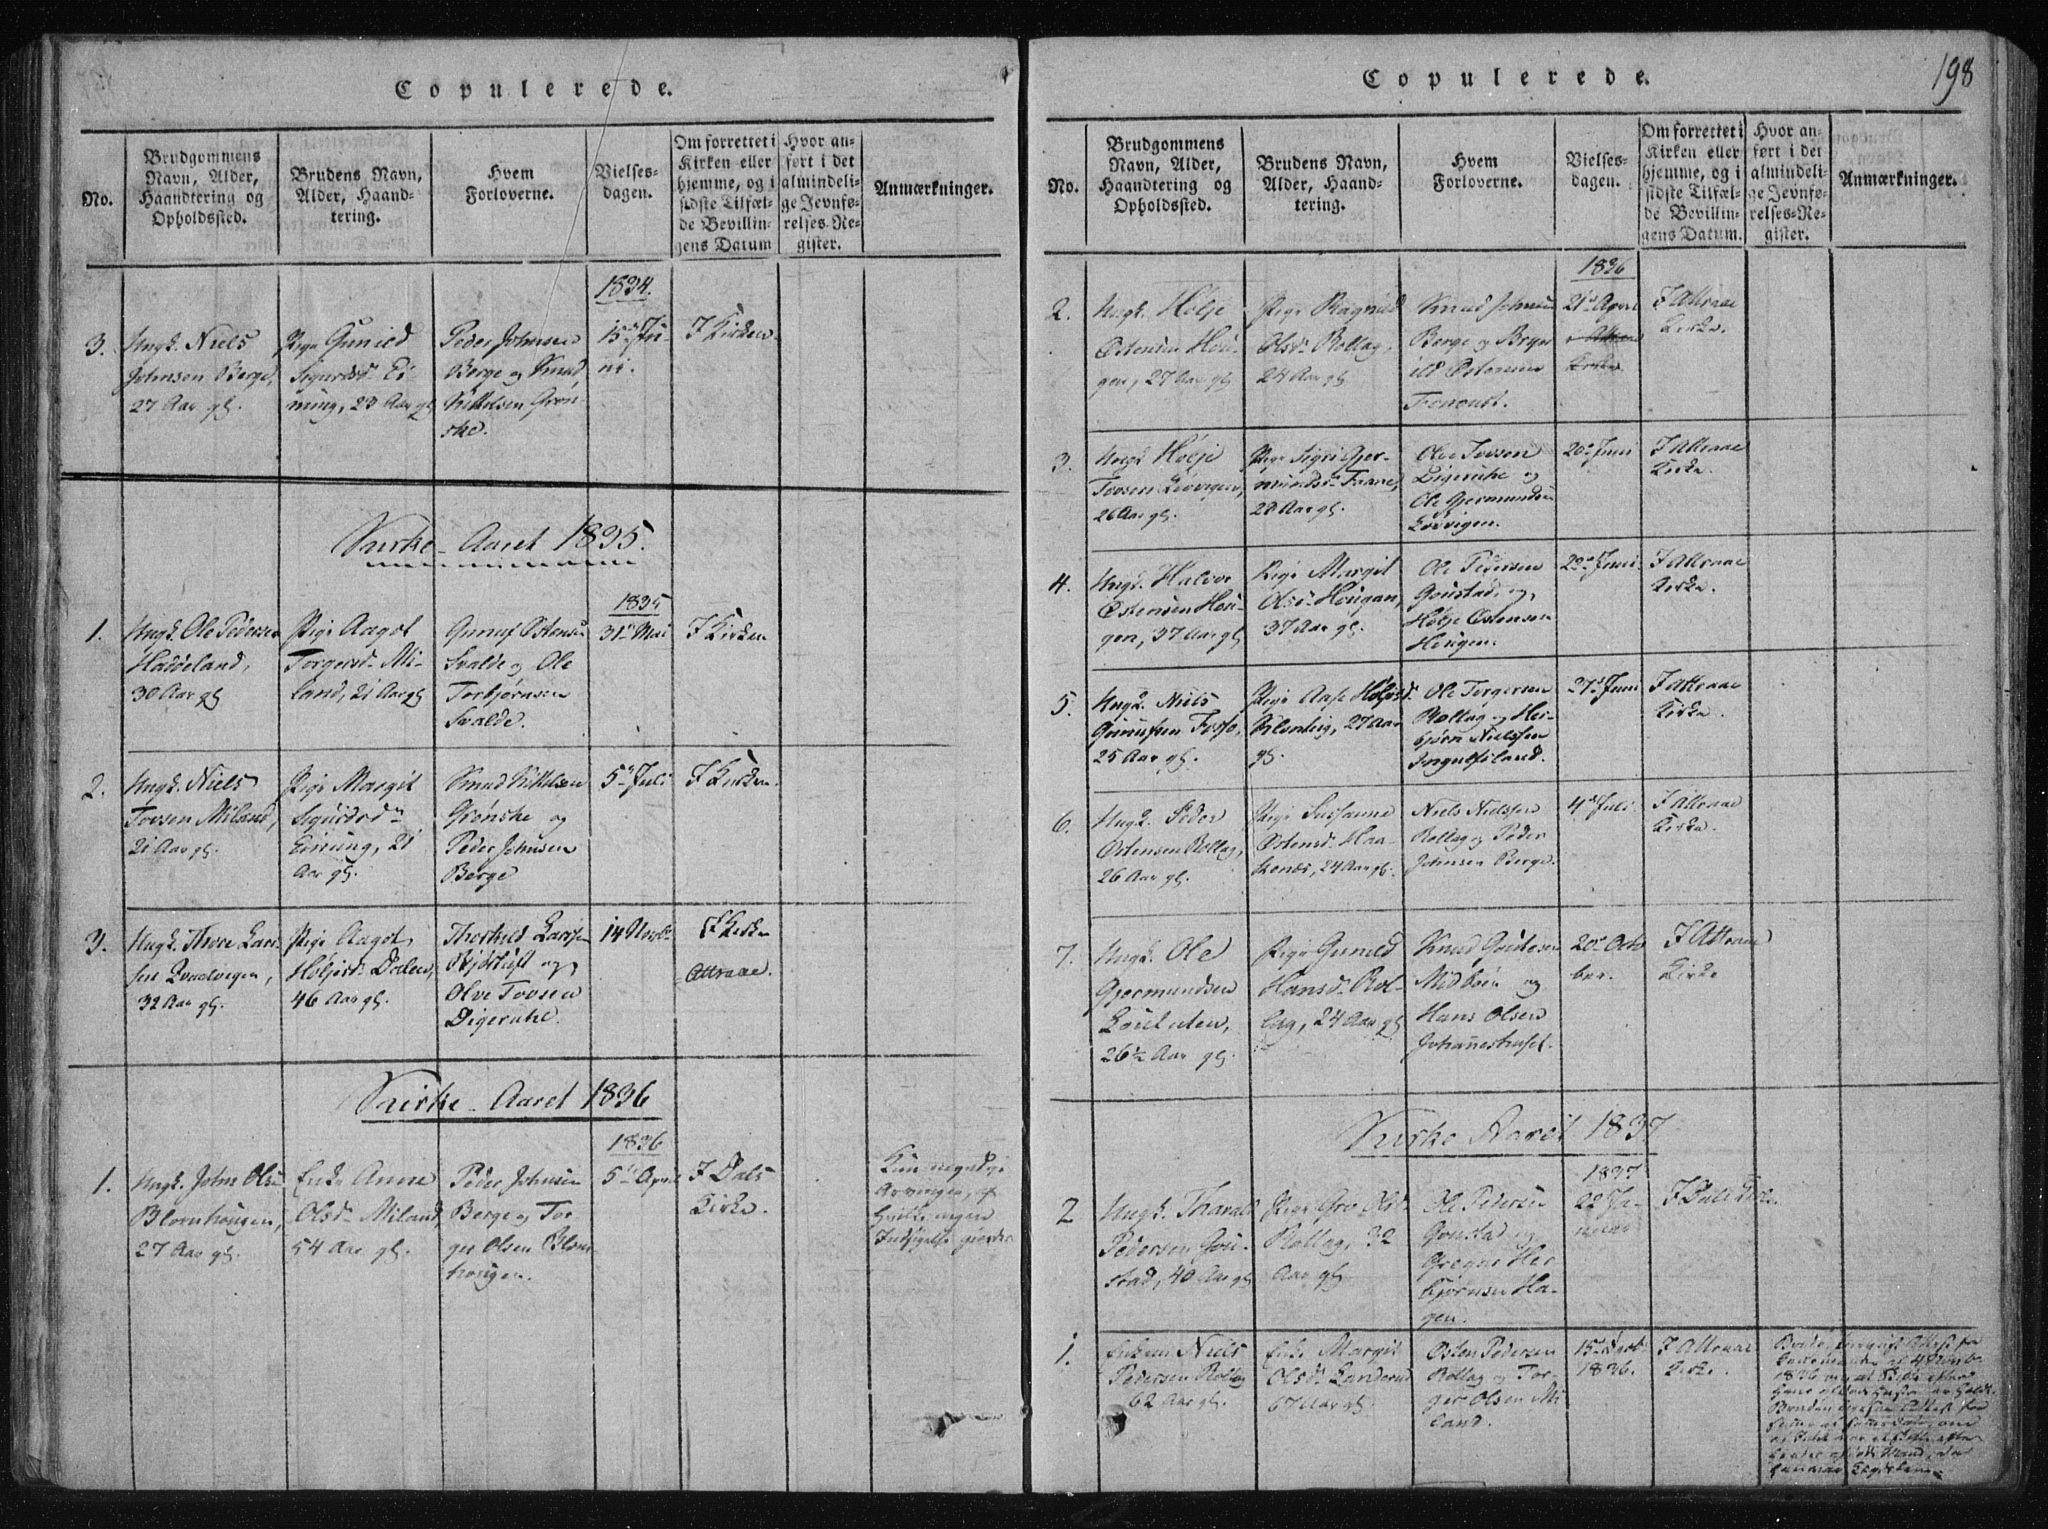 Copulerede.
No.
Brudgommens
Navn, Alder,
Haandtering og
Opholdssted.
Brudens Navn,
Alder, Haand-
tering.
Hvem
Forloverne.
Vielses-
dagen.
Om forrettet i
Kirken eller
hjemme, og i
sidste Tilfæl-
de Bevillin-
gens Datum
Hvor an-
ført i det
almindeli-
ge Jevnfø-
relses-Re-
gister.
Anmærkninger.
1834.
3.
Ungk. Niels
Johnsen Berge,
27 Aar gl.
Pige Gunild
Sigurdsd. Ei-
nung, 23 Aar gl.
Peder Johnsen
Berge og Knud
Kittelsen Grøn-
ske.
15de Ju-
ni.
I Kirken.
Kirke-Aaret 1835.
1835
1.
Ungk. Ole Pedersen
Haddeland,
30 Aar gl.
Pige Aagot
Torgersd. Mi-
land, 21 Aar gl.
Gunuf Ostensen
Svalde og Ole
Torbjørnsen
Svalde.
31te Mai
I Kirken
2.
Ungk. Niels
Tovsen Miland,
21 Aar gl.
Pige Margit
Sigurdsd.
Einung, 21
Aar gl.
Knud Kittelsen
Grønske og
Peder Johnsen
Berge
5te Juli
I Kirken.
3.
Ungk. Thore Lar-
sen
32 Aar gl.
Pige Aagot
Høljesd. Dalen,
46 Aar gl.
Larsen
og
Olve Tovsen
Digeruke.
14 Novbr
I Kirken
Attraae.
Kirke-Aaret 1836
1836
1.
Ungk. John Olsen
Blomhougen,
27 Aar gl.
Enke Anne
Olsd. Miland,
54 Aar gl.
Peder Johnsen
Berge og Tor-
ger Olsen Blom-
hougen.
5te April
I Dals
Kirke.
Kun myndige
Arvinger, og
Copulerede.
198
No.
Brudgommens
Navn, Alder,
Haandtering og
Opholdssted.
Brudens Navn,
Alder, Haand-
tering.
Hvem
Forloverne.
Vielses-
dagen.
Om forrettet i
Kirken eller
hjemme, og i
sidste Tilfæl-
de Bevillin-
gens Datum.
Hvor an-
ført i det
almindeli-
ge Jevnfø-
relses-Re-
gister.
Anmærkninger.
1836
2.
Ungk. Hølje
Ostensen Hou-
gen, 27 Aar gl.
Pige Ragnild
Olsd. Rollag,
24 Aar gl.
Knud Johnsen
Berge og
Ostensen
21de April
I Attraae
Kirke.
3.
Ungk. Hølje
Tovsen
26 Aar gl.
Pige Sigri Gjer-
mundsd. Traae,
28 Aar gl.
Ole Tovsen
Digeruke og
Ole Gjermundsen
20de Juni
I Attraae
Kirke.
4.
Ungk. Halvor
Ostensen Hou-
gen, 37 Aar gl.
Pige Margit
Olsd. Hougan,
37 Aar gl.
Ole Pedersen
Goustad, og
Hølje Ostensen
Hougen.
I Attraae
Kirke.
5.
Ungk. Niels
Gunufsen Fosso,
25 Aar gl.
Pige Aase Høljesd.
27 Aar
gl.
Ole Torgersen
Rollag og Her-
bjørn Nielssen
Ingulfsland.
27de Juni
I Attraae
Kirke.
6.
Ungk. Peder
Ostensen Rollag,
26 Aar gl.
Pige Susanne
Ostensd. Haa-
kenæs, 24 Aar gl.
Niels Nielssen
Rollag og Peder
Johnsen Berge.
4de Juli
I Attraae
Kirke.
7.
Ungk. Ole
Gjermundsen
26½ Aar gl.
Pige Gunild
Hansd. Rol-
lag, 24 Aar gl.
Knud Goutesen
Midbøen og
Hans Olsen
Johanneshuset.
20de Octo-
ber.
I Attraae
Kirke
Kirke Aaret 1837
1837
2
Ungk. Tharald
Pedersen Gou-
stad, 40 Aar gl.
Pige Gro Olsd.
Rollag, 32
Aar gl.
Ole Pedersen
Goustad og
Gregar Her-
bjørnsen Ha-
gen.
22 Ja-
nuar
I Dals Kirke.
1.
Enkem. Niels
Pedersen Rollag
62 Aar gl.
Enke Margit
Olsd. Landerud
67 Aar gl.
Osten Pedersen
Rollag og Tor-
ger Olsen Mi-
land.
1836.
I Attraae
Kirke.